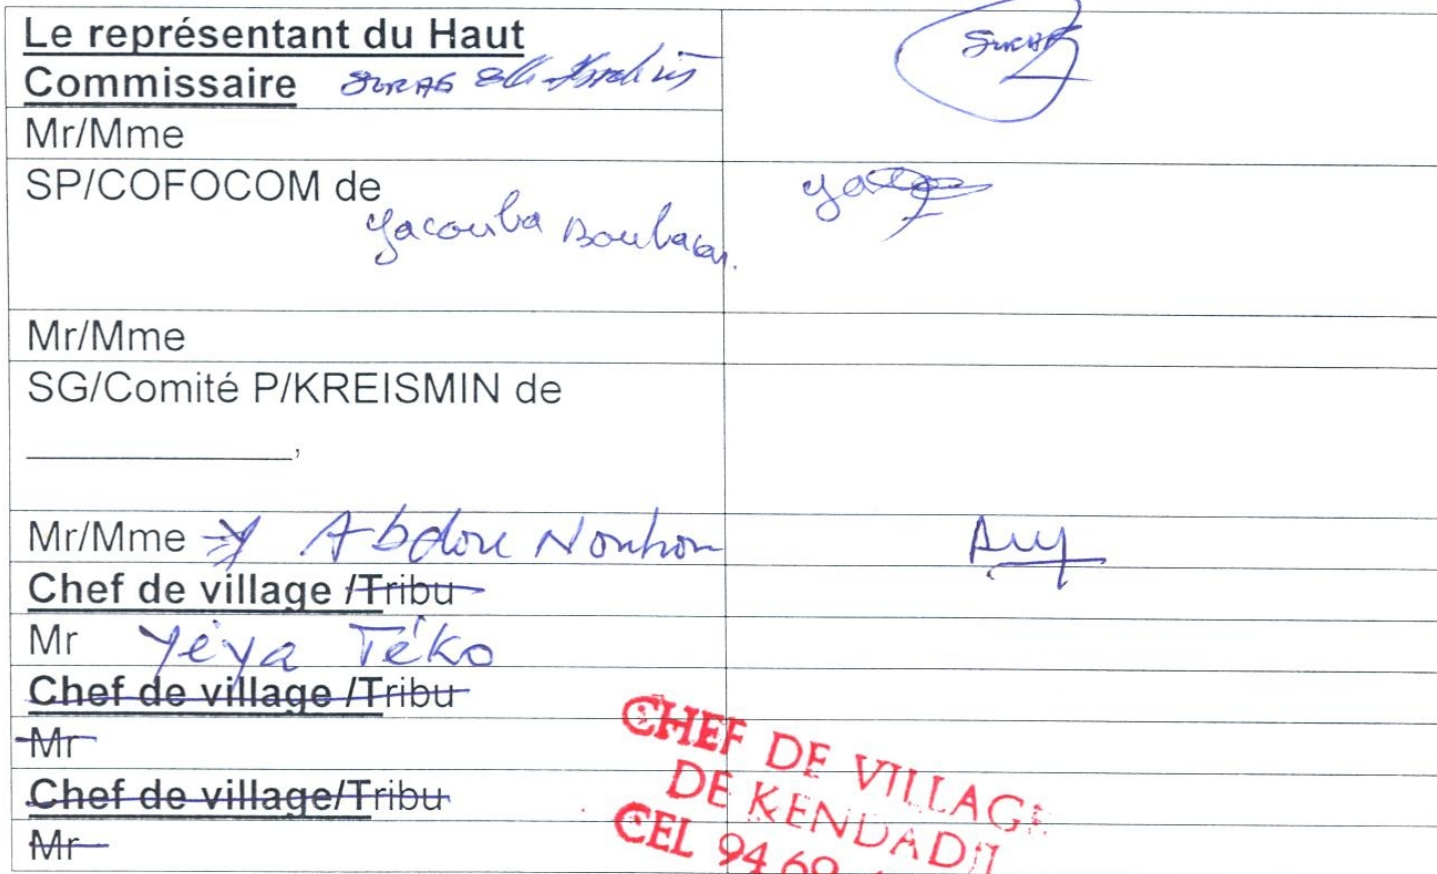 Le représentant du Haut
Commissaire
Mr/Mme
SP/COFOCOM de
Yacouba Boubacar.
Mr/Mme
SG/Comité P/KREISMIN de
______________,
Mr/Mme Abdou Nouhou
Chef de village /Tribu
Mr Yéya Téko
Chef de village /Tribu
Mr
Chef de village/Tribu
Mr
CHEF DE VILLAGE
DE KENDADJI
CEL 94 69